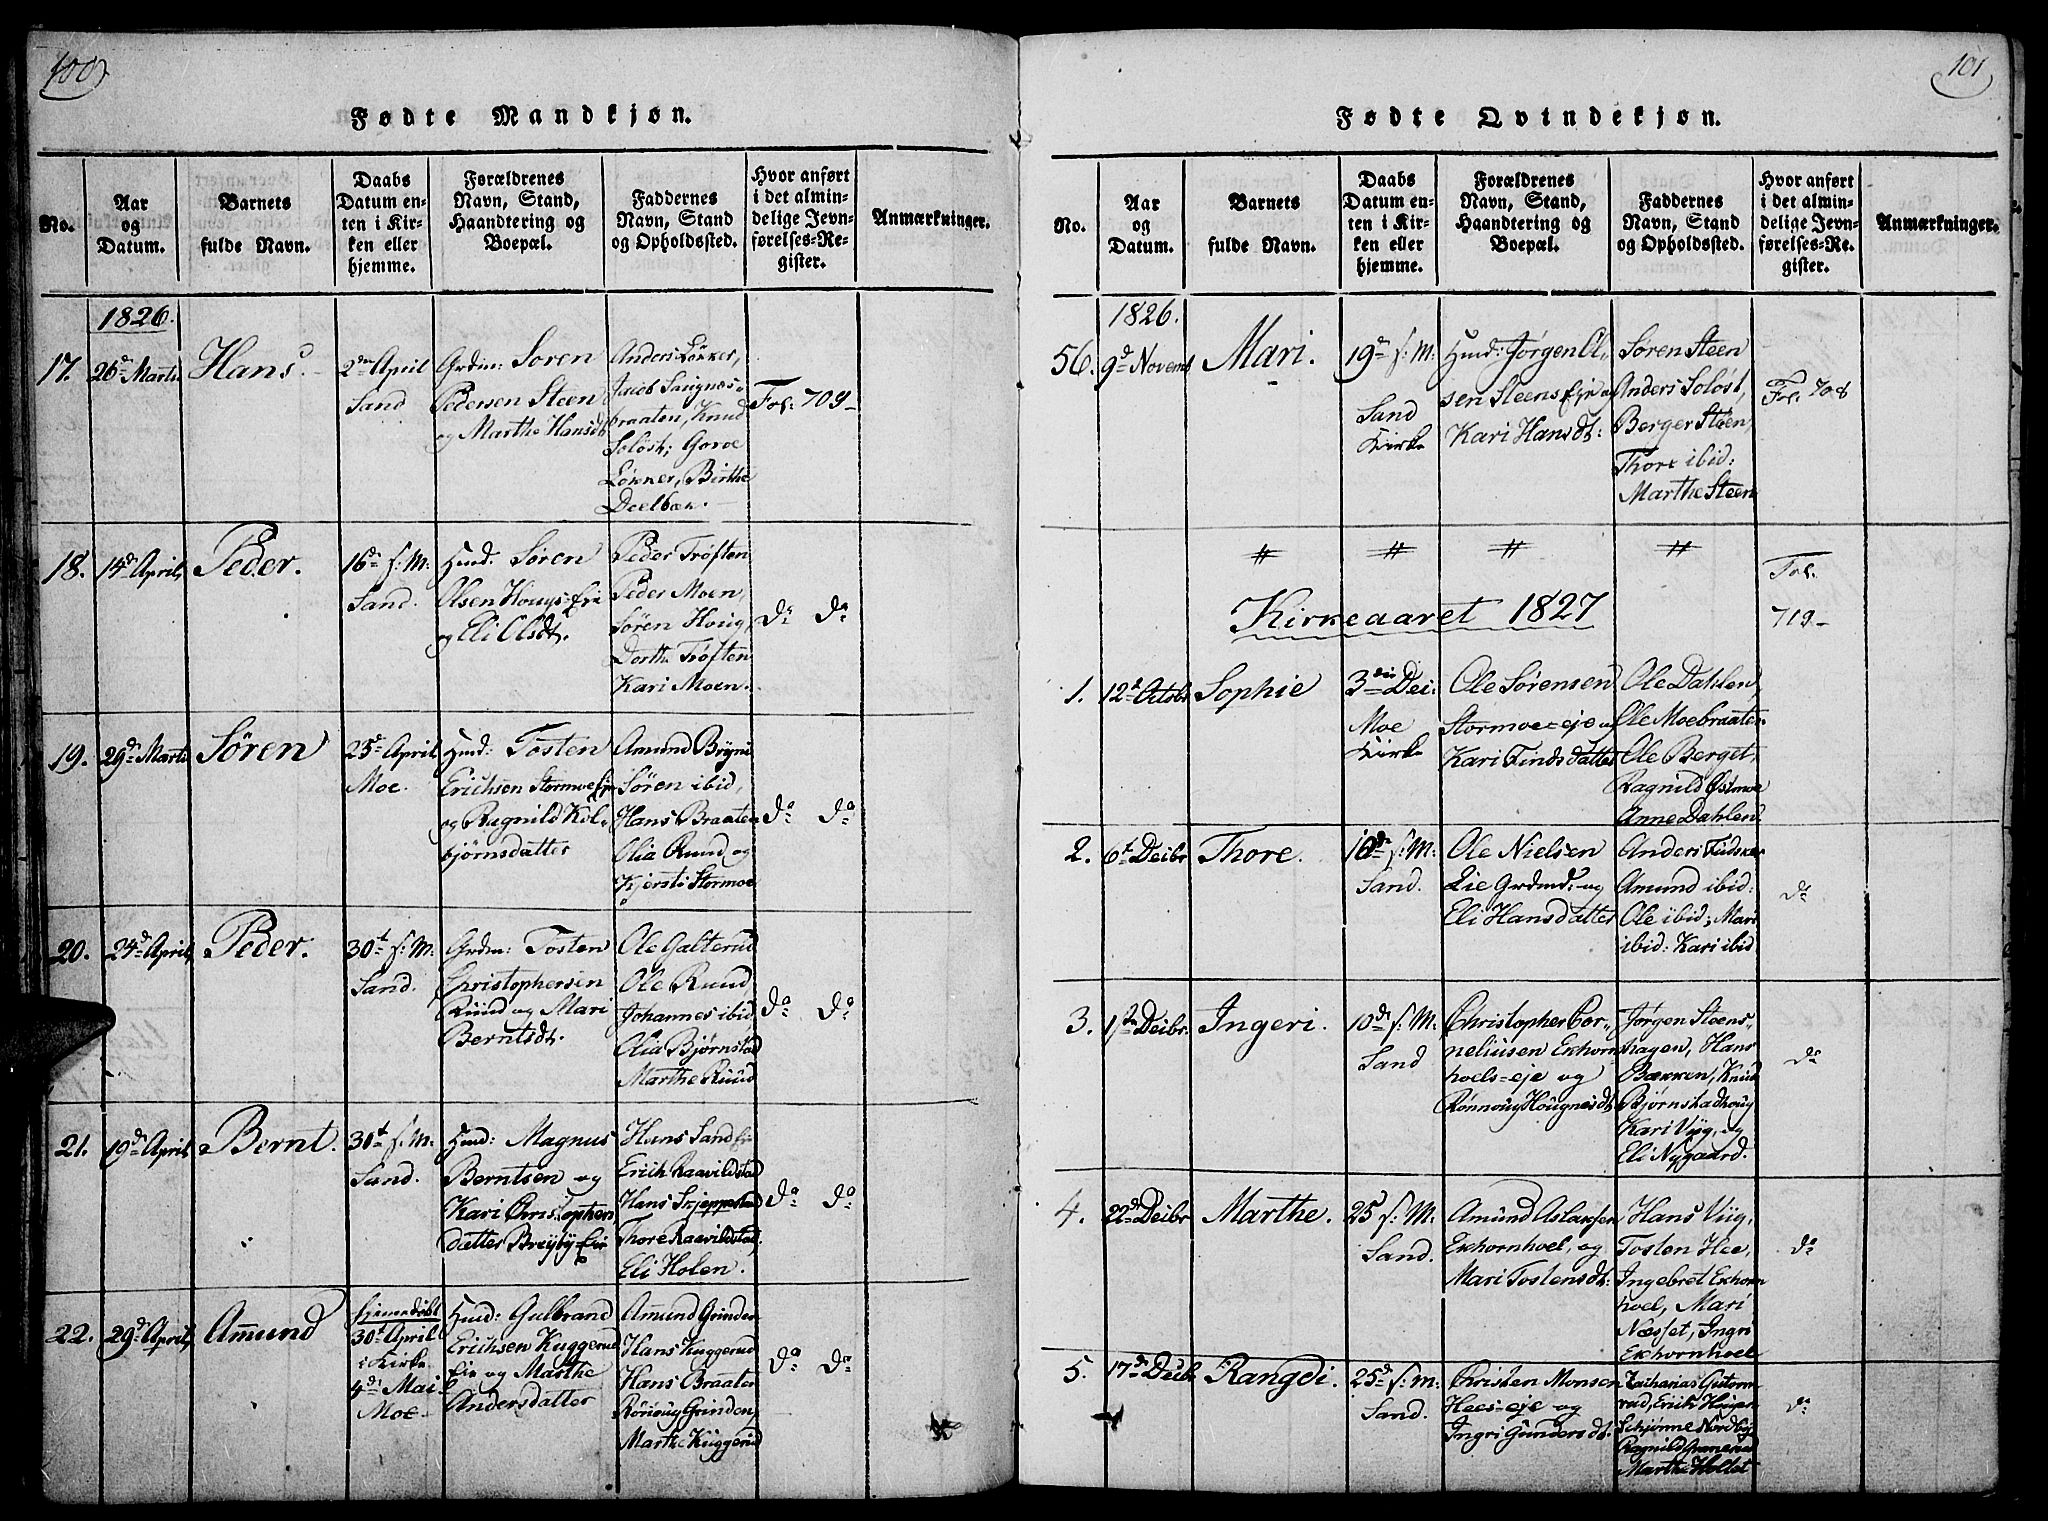 100
Fødte Mandkjøn.
No.
Aar
og
Datum.
Barnets
fulde Navn.
Daabs
Datum en-
ten i Kir-
ken eller
hjemme.
Forældrenes
Navn, Stand,
Haandtering og
Boepæl.
Faddernes
Navn, Stand
og Opholdssted.
Hvor anført
i det almin-
delige Jevn-
førelses-Re-
gister.
Anmærkninger.
1826.
17.
26d Marts
Hans
2den April
Sand
Grdm: Søren
Pedersen Steen
og Marthe Hansdt
Anders Løkker,
Jacob
braaten, Knud
Soløst; Goroe
Løkker, Birthe
Deelbæk.
Fol: 709
18.
14d April
Peder.
16d f: M:
Sand.
Hmd: Søren
Olsen Hougs-Eie
og Eli Olsdt.
Peder Trøften
Peder Moen,
Søren Houg,
Dorthe Trøften
Kari Moen.
Do Do
19.
29d Marts
Søren
23d April
Moe.
Hmd: Tosten
Erichsen Stormoe Eje
og Ragnild Kol-
bjørnsdatter
Amund Bryni
Søren ibid,
Hans Braaten
Olia Ruud og
Kjersti Stormoe
Do Do
20.
24d April
Peder.
30t f: M:
Sand.
Grdm: Tosten
Christophersen
Ruud og Mari
Berntsdt.
Ole Galterud
Ole Ruud,
Johannes ibid
Olia Bjørnstad
Marthe Ruud
Do Do
21.
19d April
Bernt.
30t f: M:
Sand.
Hmd: Magnus
Berntsen og
Kari Christophers
datter Breyby-Eie
Hans Sand
Erich Raavildstad
Hans Skjeppestad
Thore Raavildstad,
Eli Holen.
Do Do
22.
29d April
Amund
hjemmedøbt
30t April
i Kirke
4de Mai
Moe
Hmd: Gulbrand
Erichsen Kuggerud
Eie og Marthe
Andersdatter
Amund Grinder
Hans Kuggerud
Hans Braaten
Rønnoug Grinden,
Marthe Kuggerud
Do Do
101
Fødte Qvindekjøn.
No.
Aar
og
Datum.
Barnets
fulde Navn.
Daabs
Datum en-
ten i Kir-
ken eller
hjemme.
Forældrenes
Navn, Stand,
Haandtering og
Boepæl.
Faddernes
Navn, Stand
og Opholdssted.
Hvor anført
i det almin-
delige Jevn-
førelses-Re-
gister.
Anmærkninger.
1826.
56.
9d Novemb
Mari.
19d f: M:
Sand
Kirke
Hmd: Jørgen Ol-
sen Steens Eje og
Kari Hansdt:
Søren Steen
Anders Soløst,
Berger Steen,
Thore ibid:
Marthe Steen
Fol. 708
Kirkeaaret 1827
Fol.
719
1.
12t Octobr
Sophie
3die Dei:
Moe
Kirke
Ole Sørensen
Stormoe-eje og
Kari Findsdatter
Ole Dahlen,
Ole Moebraaten
Ole Berget,
Ragnild Østmoe
Anne Dahlen.
2.
6t Deibr
Thore.
10de f: M:
Sand.
Ole Nielsen
Lie Grdmd: og
Eli Hansdatter
Anders Fudsker
Amund ibid:
Ole ibid; Mari
ibid: Kari ibid
Do
3.
1ste Deibr.
Ingeri.
10de f: M:
Sand
Christopher Cor-
neliusen Ekhorn
hoels-eje og
Rønnoug Hougnesdt
Jørgen Steens-
hagen, Hans
Bækken, Knud
Bjørnstadhoug
Kari Viig, og
Eli Nygaard.
Do
4.
22de Deibr
Marthe.
25 f: M:
Sand.
Amund Aslaksen
Exhornhoel, og
Mari Tostensdt:
Hans Viig,
Tosten Hee,
Ingebret Exhorn
hoel, Mari
Næsset, Ingri
Exhornhoel
Do
5.
17de Deibr
Rangdi.
25d f: M:
Sand.
Christen Monsen
Hees-eje og
Ingri Gundersdt.
Zacharias Gutorm
rud, Erik Haugen
Schjønne Nordby
Ragnild Grønerud
Marthe Hollet
Do